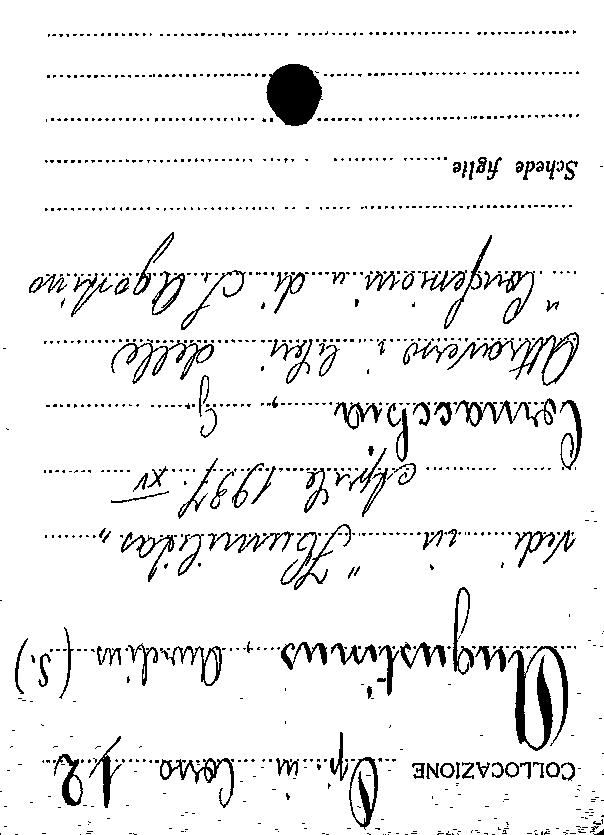 COLLOCAZIONE Op. in Corso 12
Augustinus, Aurelius (S.)
Vedi in "Humilitas"
Aprile 1937. XV
Cornacchia, G.
Attraverso i libri delle
"Confessioni" di S. Agostino
Schede figlie